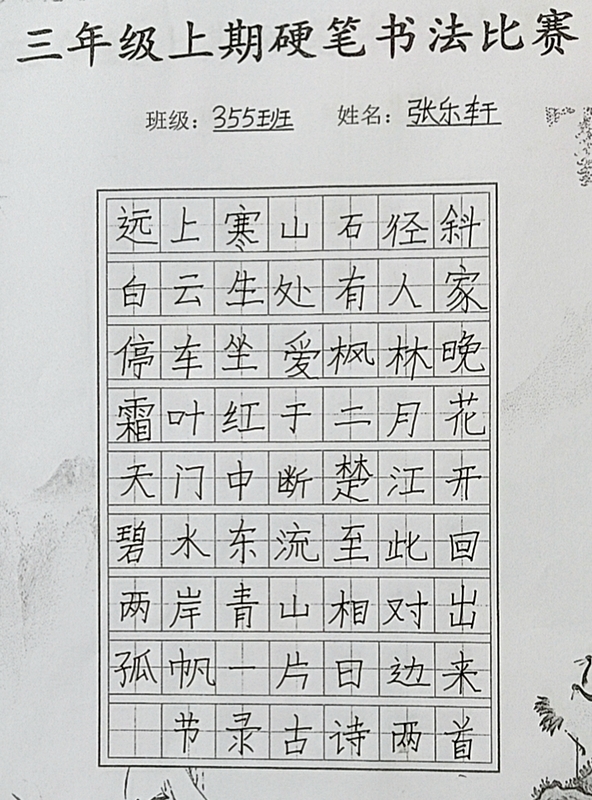 三年级上期硬笔书法比赛
班级：355班 姓名：张乐轩
远上寒山石径斜
白云生处有人家
停车坐爱枫林晚
霜叶红于二月花
天门中断楚江开
碧水东流至此回
两岸青山相对出
孤帆一片日边来
节录古诗两首